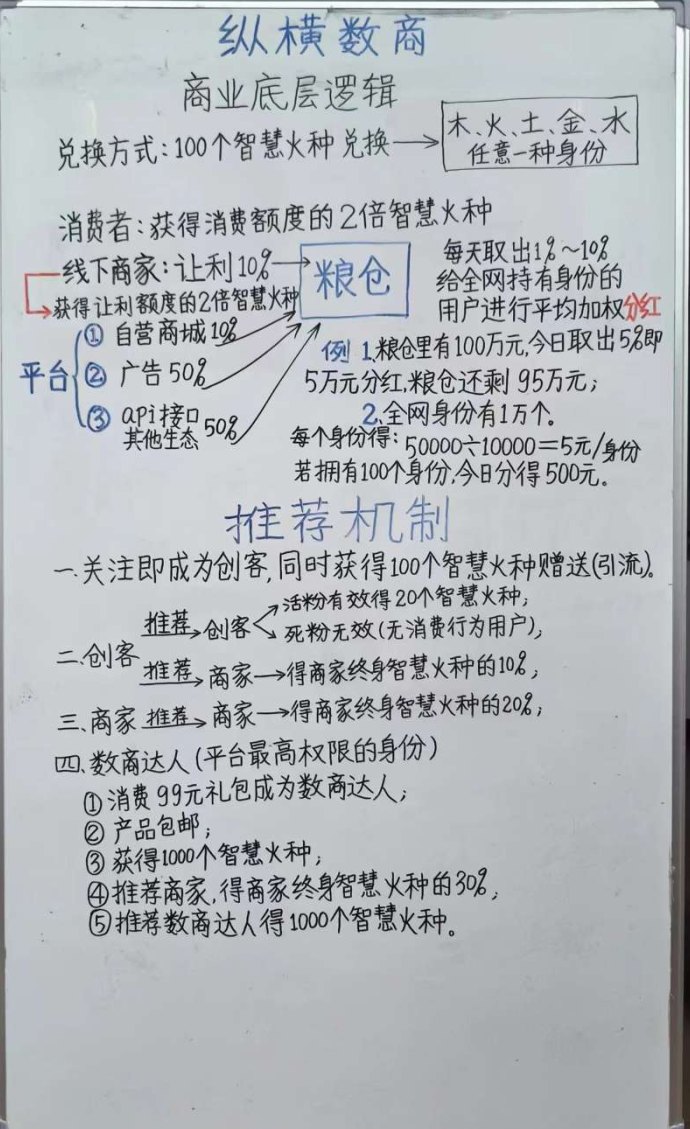 纵横数商
商业底层逻辑
兑换方式:100个智慧火种兑换→
木、火、土、金、水
任意一种身份
消费者:获得消费额度的2倍智慧火种
线下商家:让利10%→
获得让利额度的2倍智慧火种
粮仓
每天取出1%~10%
给全网持有身份的
用户进行平均加权分红
平台
① 自营商城10%
② 广告50%
③ api接口
其他生态 50%
例 1.粮仓里有100万元,今日取出5%即
5万元分红,粮仓还剩95万元;
2.全网身份有1万个。
每个身份得:50000÷10000=5元/身份
若拥有100个身份,今日分得500元。
推荐机制
一.关注即成为创客,同时获得100个智慧火种赠送(引流)。
二.创客
推荐→创客
活粉有效得20个智慧火种;
死粉无效(无消费行为用户);
推荐→商家→得商家终身智慧火种的10%;
三.商家 推荐→商家→得商家终身智慧火种的20%;
四.数商达人(平台最高权限的身份)
①消费99元礼包成为数商达人;
②产品包邮;
③获得1000个智慧火种;
④推荐商家,得商家终身智慧火种的30%;
⑤推荐数商达人得1000个智慧火种。